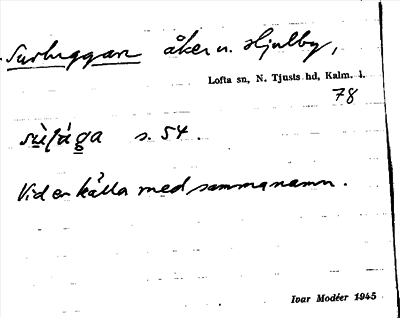 Surhuggan åker u. Hjulby,
Lofta sn, N. Tjusts hd, Kalm. l.
78
s. 54.
Vid en källa med samma namn.
Ivar Modéer 1945